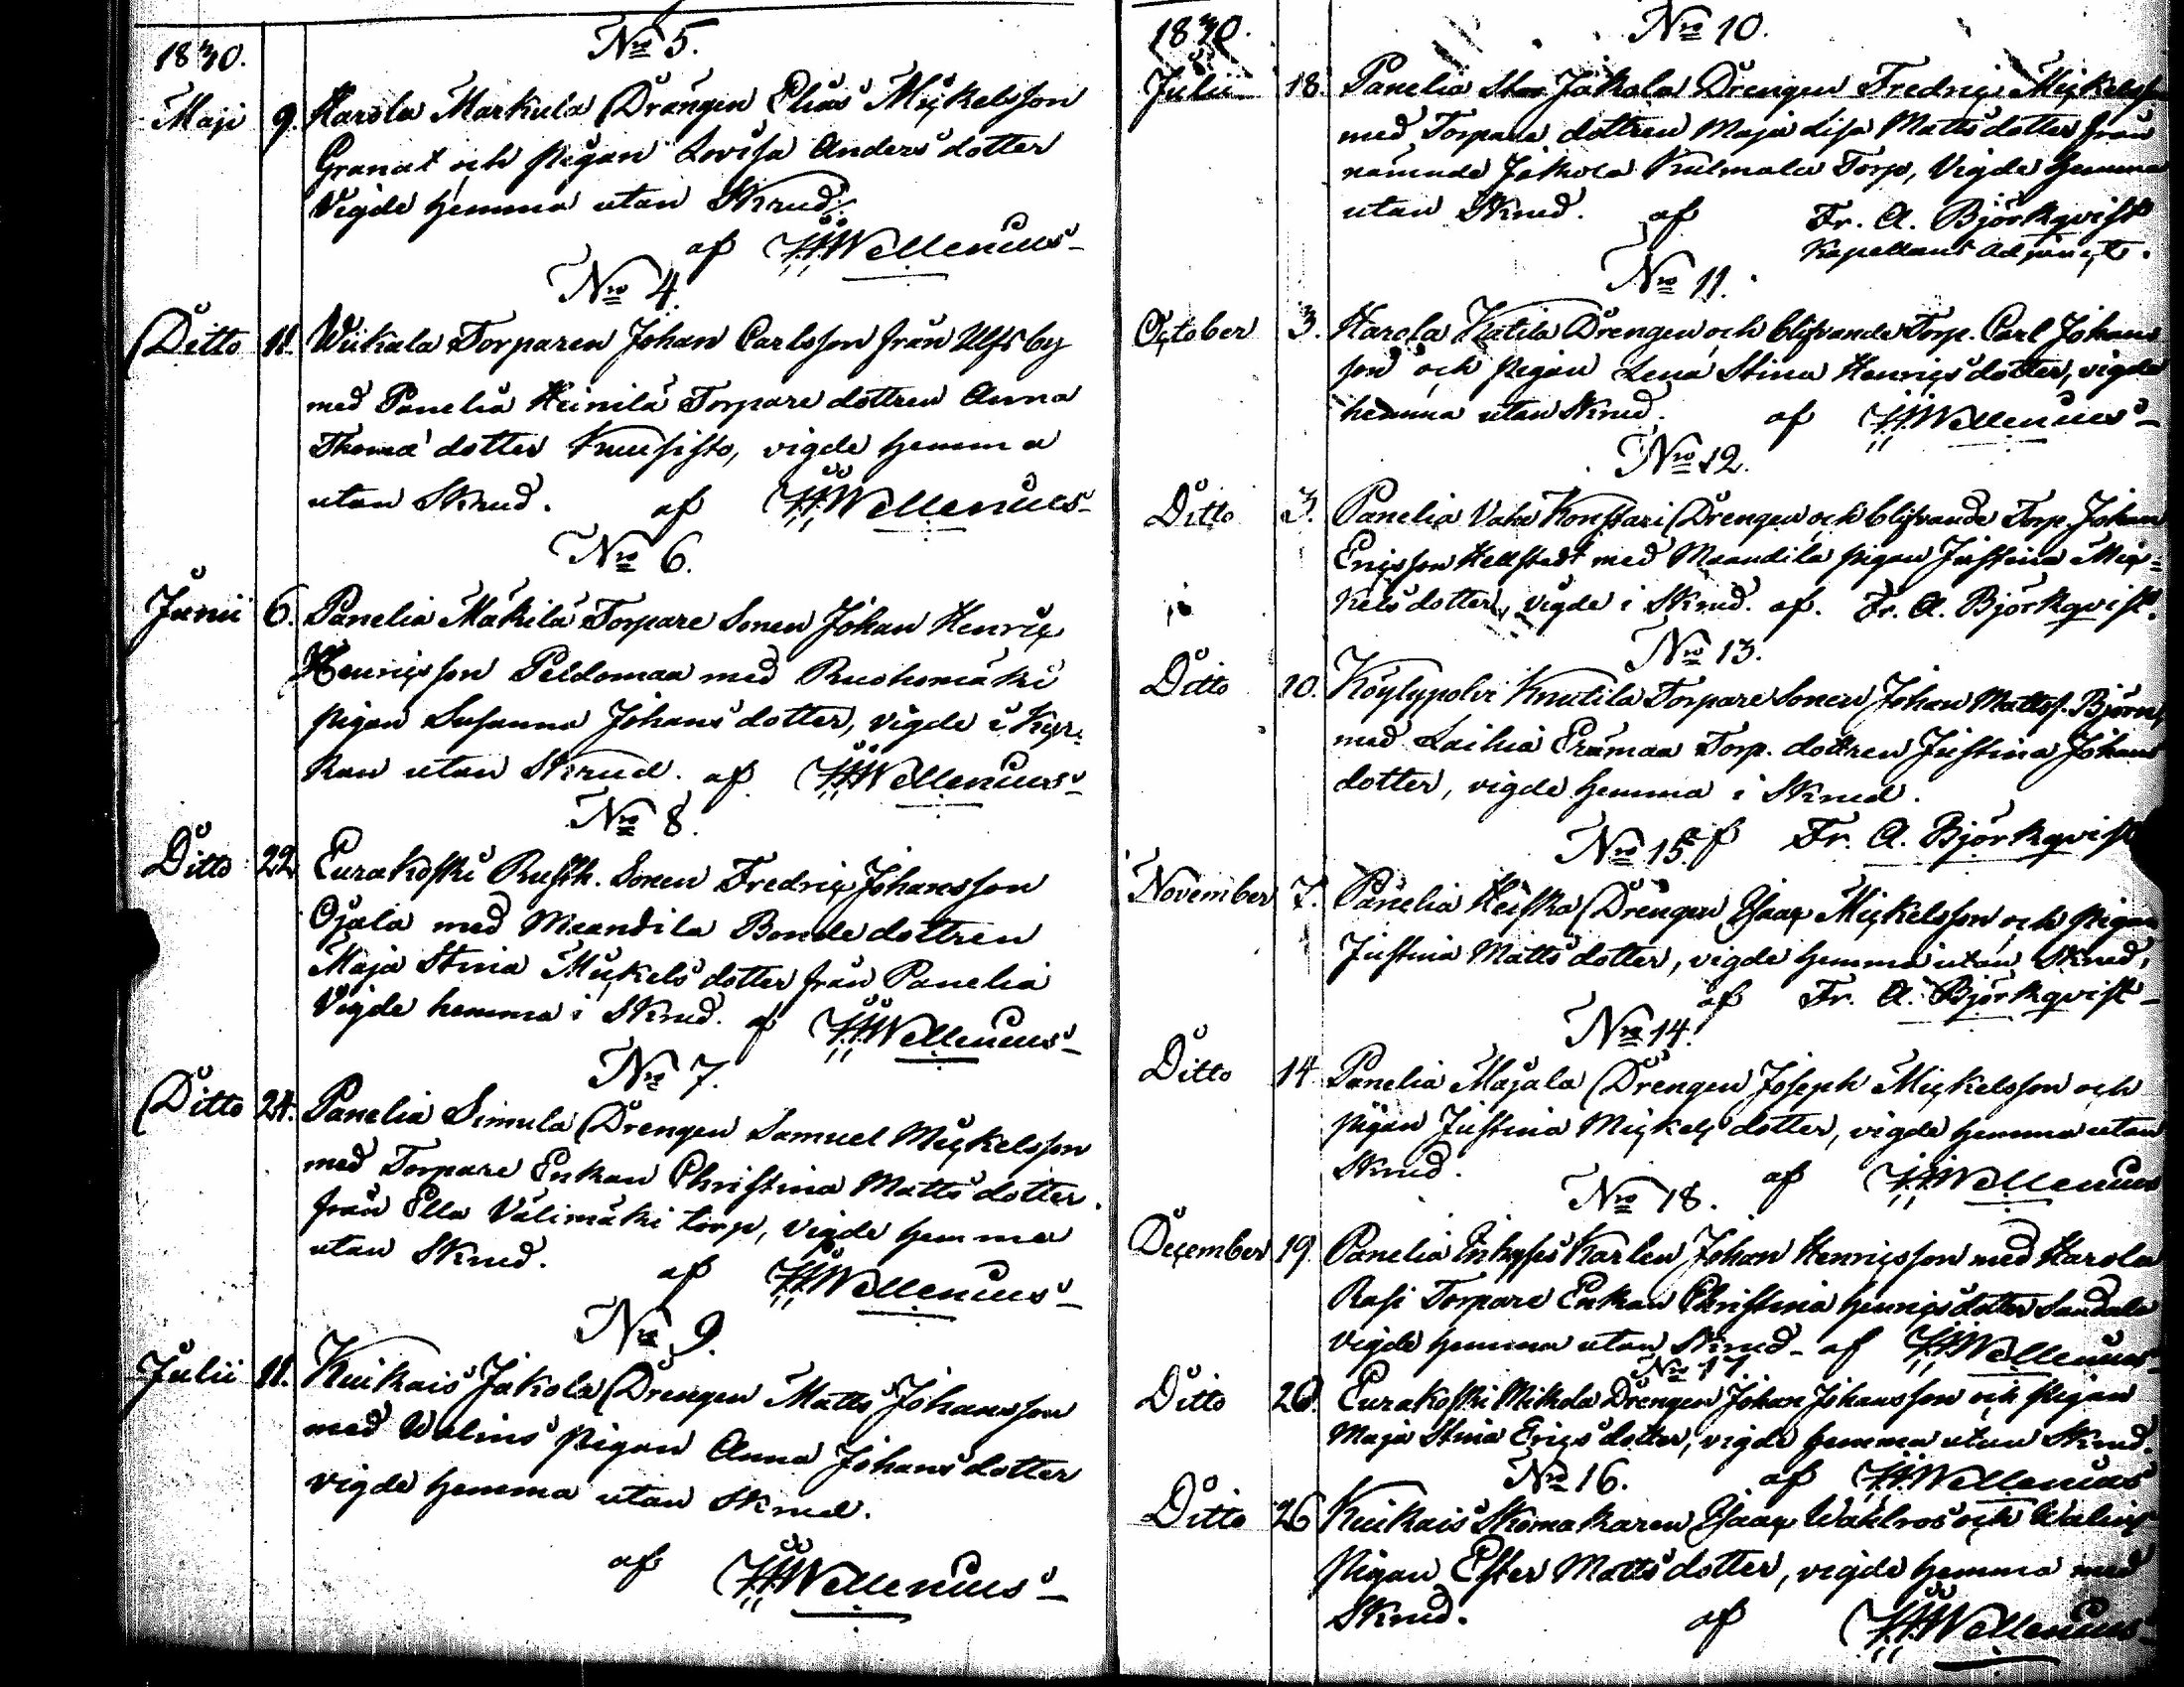 1830.
No 5.
Maji 9. Harola Markula Drängen Elias Mickelsson
Granat och pigan Lovisa Anders dotter
Vigde hemma utan Skrud.
af H:H:Wellenius
No 4.
Ditto 11. Wiikala Torparen Johan Carlsson från Ulfsby
med Panelia Heinilä Torpare dottren Anna
Thomæ dotter Kuusisto, vigde hemma
utan Skrud. af H:H:Wellenius
No 6.
Junii 6. Panelia Mäkilä Torpare Sonen Johan Henric
Henricsson Peldomaa med Ruohomäki
pigan Susanna Johans dotter, vigde i Kyr-
kan utan Skrud. af H:H:Wellenius
No 8.
Ditto 22 Eurakoski Rusth. Sonen Fredric Johansson
Ojala med Maandila Bonde dottren
Maja Stina Mickels dotter från Panelia
Vigde hemma i Skrud. af H:H:Wellenius
No 7.
Ditto 24. Panelia Simula Drengen Samuel Mickelsson
med Torpare Enkan Christina Matts dotter
från Ella Välimäki torp, vigde hemma
utan Skrud. af H:H:Wellenius
No 9.
Julii 11. Kiukais Jakola Drengen Matts Johansson
med Walins pigan Anna Johans dotter
vigde hemma utan Skrud.
af H:H:Wellenius
1830.
No 10.
Julii 18. Panelia Jakola Drengen Fredric Mickelsson
med Torpare dottren Maja Lisa Matts dotter från
nämnde Jakola Kulmala Torp, Vigde hemma
utan Skrud. af Fr. A. Björkqvist
Kapellans Adjunct.
No 11.
October 3. Harola Katila Drengen och blifvande Torp. Carl Johans
son och pigan Lena Stina Henrics dotter, vigde
hemma utan Skrud. af H:H:Wellenius
No 12.
Ditto 3. Panelia Vaha Konssari Drengen och blifvande Torp. Johan
Ericsson Hellstedt med Maandila pigan Justina Mic-
kels dotter, vigde i Skrud. af. Fr. A. Björkqvist.
No 13.
Ditto 10. Köylypolvi Knutila Torpare Sonen Johan Mattss. Björn
med Laihia Erämaa Torp. dottren Justina Johans
dotter, vigde hemma i Skrud.
af Fr. A. Björkqvist
No 15.
November 7. Panelia Heiska Drengen Isaac Mickelsson och pigan
Justina Matts dotter, vigde hemma utan Skrud,
af Fr. A. Björkqvist
No 14.
Ditto 14. Panelia Majala Drengen Joseph Mickelsson och
pigan Justina Mickels dotter, vigde hemma utan
Skrud. af H:H:Wellenius
No 18.
December 19. Panelia Inhyses Karlen Johan Henricsson med Harola
Rasi Torpare Enkan Christina Henrics dotter Sandala
vigde hemma utan Skrud. af H:H:Wellenius
No 17
Ditto 26. Eurakoski Mikola Drengen Johan Johansson och pigan
Maja Stina Erics dotter, vigde hemma utan Skrud.
af H:H:Wellenius
No 16.
Ditto 26 Kiukais Skomakaren Isaac Wahlros och Walins
pigan Ester Matts dotter, vigde hemma med
Skrud. af H:H:Wellenius